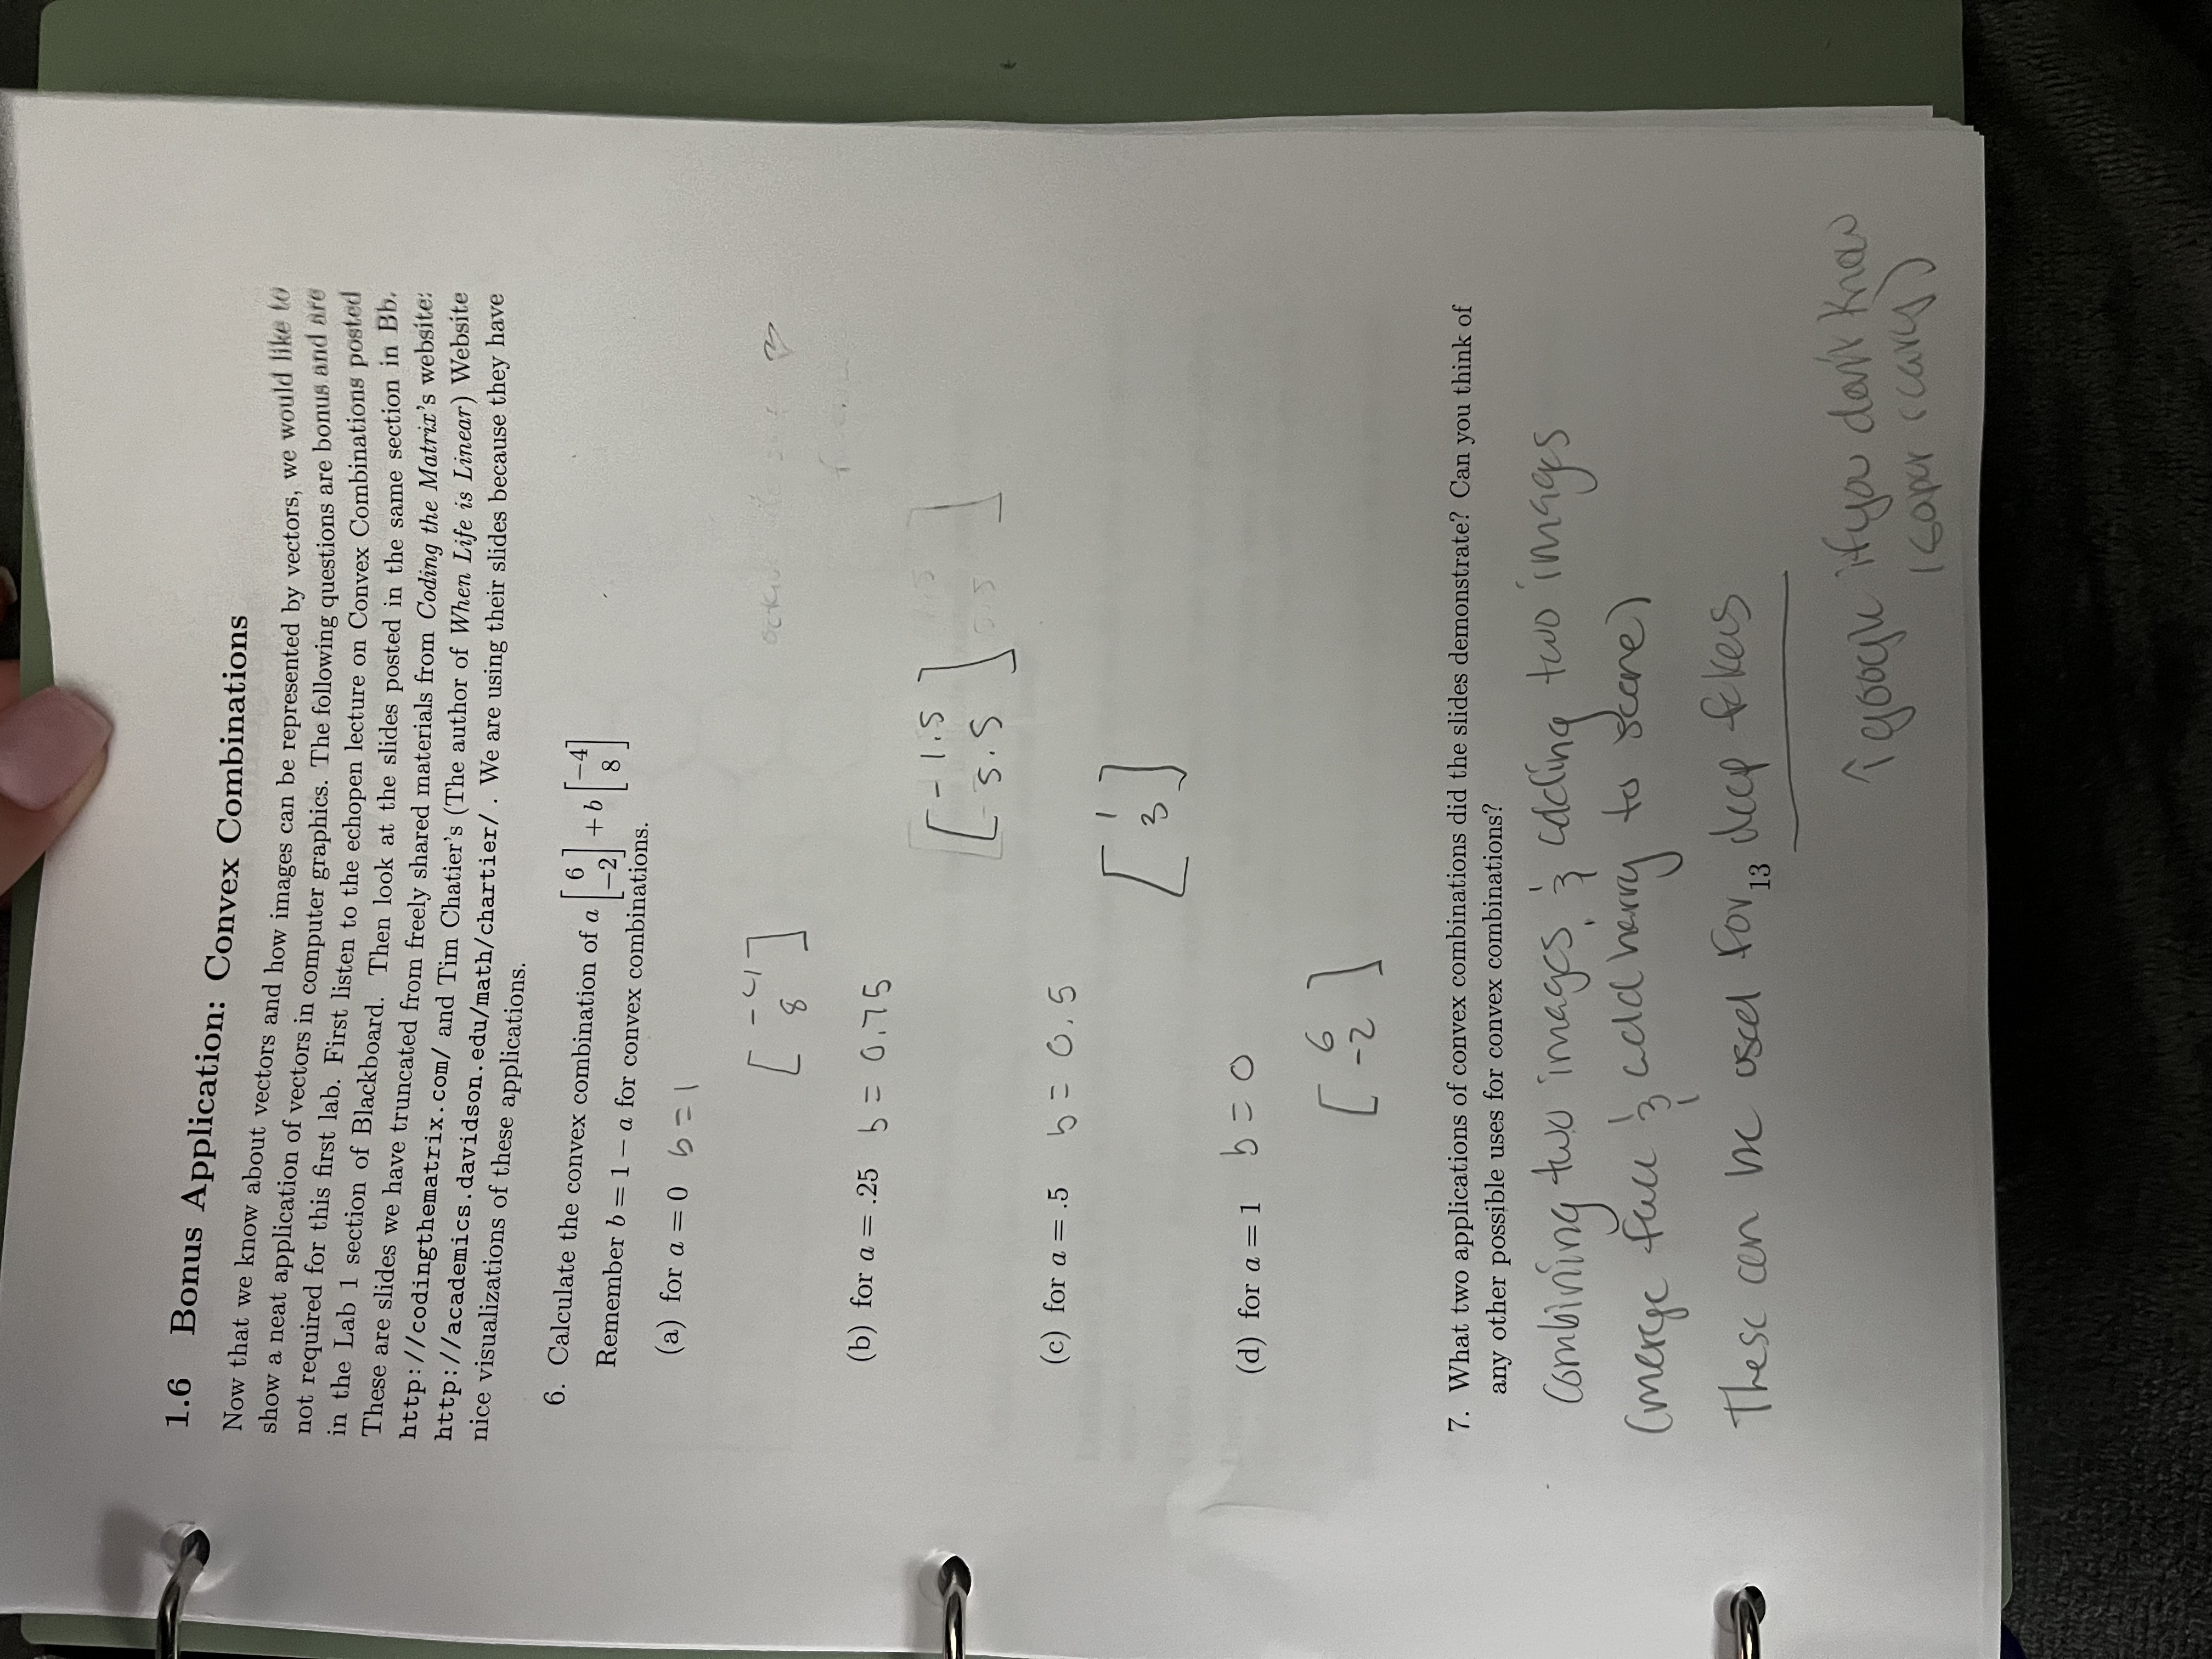 1.6 Bonus Application: Convex Combinations
Now that we know about vectors and how images can be represented by vectors, we would like to
show a neat application of vectors in computer graphics. The following questions are bonus and are
not required for this first lab. First listen to the echopen lecture on Convex Combinations posted
in the Lab 1 section of Blackboard. Then look at the slides posted in the same section in Bb.
These are slides we have truncated from freely shared materials from Coding the Matrix's website:
http://codingthematrix.com/ and Tim Chatier's (The author of When Life is Linear) Website
http://academics.davidson.edu/math/chartier/ . We are using their slides because they have
nice visualizations of these applications.
6. Calculate the convex combination of a [6 -2] + b [-4 8]
Remember b = 1 − a for convex combinations.
(a) for a = 0 b = 1
[-4
8]
(b) for a = .25 b = 0.75
[-1.5
5.5]
(c) for a = .5 b = 0.5
[1
3]
(d) for a = 1 b = 0
[6
-2]
7. What two applications of convex combinations did the slides demonstrate? Can you think of
any other possible uses for convex combinations?
Combining two images & adding two images
(merge face & add harry to scene)
These can be used for deep fakes
13
↑ google if you don't know
(super scary)